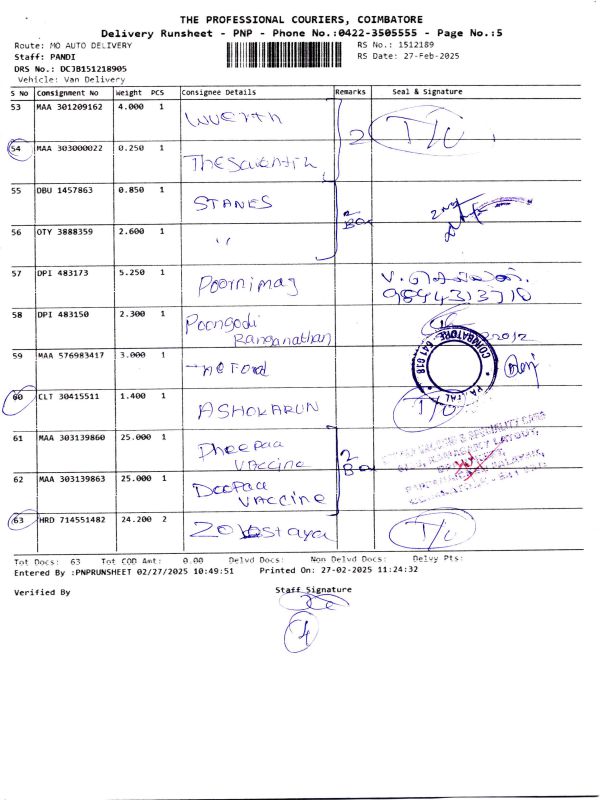 THE PROFESSIONAL COURIERS, COIMBATORE
Delivery Runsheet - PNP - Phone No.:0422-3505555 - Page No.:5
Route: MO AUTO DELIVERY RS No.: 1512189
Staff: PANDI RS Date: 27-Feb-2025
DRS No.: DCJB151218905
Vehicle: Van Delivery
S No Consignment No Weight PCS Consignee Details Remarks Seal & Signature
53 MAA 301209162 4.000 1 Wuerth
2 T/C
54 MAA 303000022 0.250 1
55 DBU 1457863 0.850 1 STANES
2 Box 2nd
56 OTY 3888359 2.600 1 "
57 DPI 483173 5.250 1 Poornimaj
58 DPI 483150 2.300 1 Poongodi
Ranganathan
59 MAA 576983417 3.000 1
COIMBATORE 641 018
60 CLT 30415511 1.400 1 ASHOKARUN T/C
61 MAA 303139860 25.000 1 Dheepaa
Vaccine
2 Box
62 MAA 303139863 25.000 1 Deepaa
Vaccine
63 HRD 714551482 24.200 2 T/C
Tot Docs: 63 Tot COD Amt: 0.00 Delvd Docs: Non Delvd Docs: Delvy Pts:
Entered By :PNPRUNSHEET 02/27/2025 10:49:51 Printed On: 27-02-2025 11:24:32
Verified By Staff Signature
4